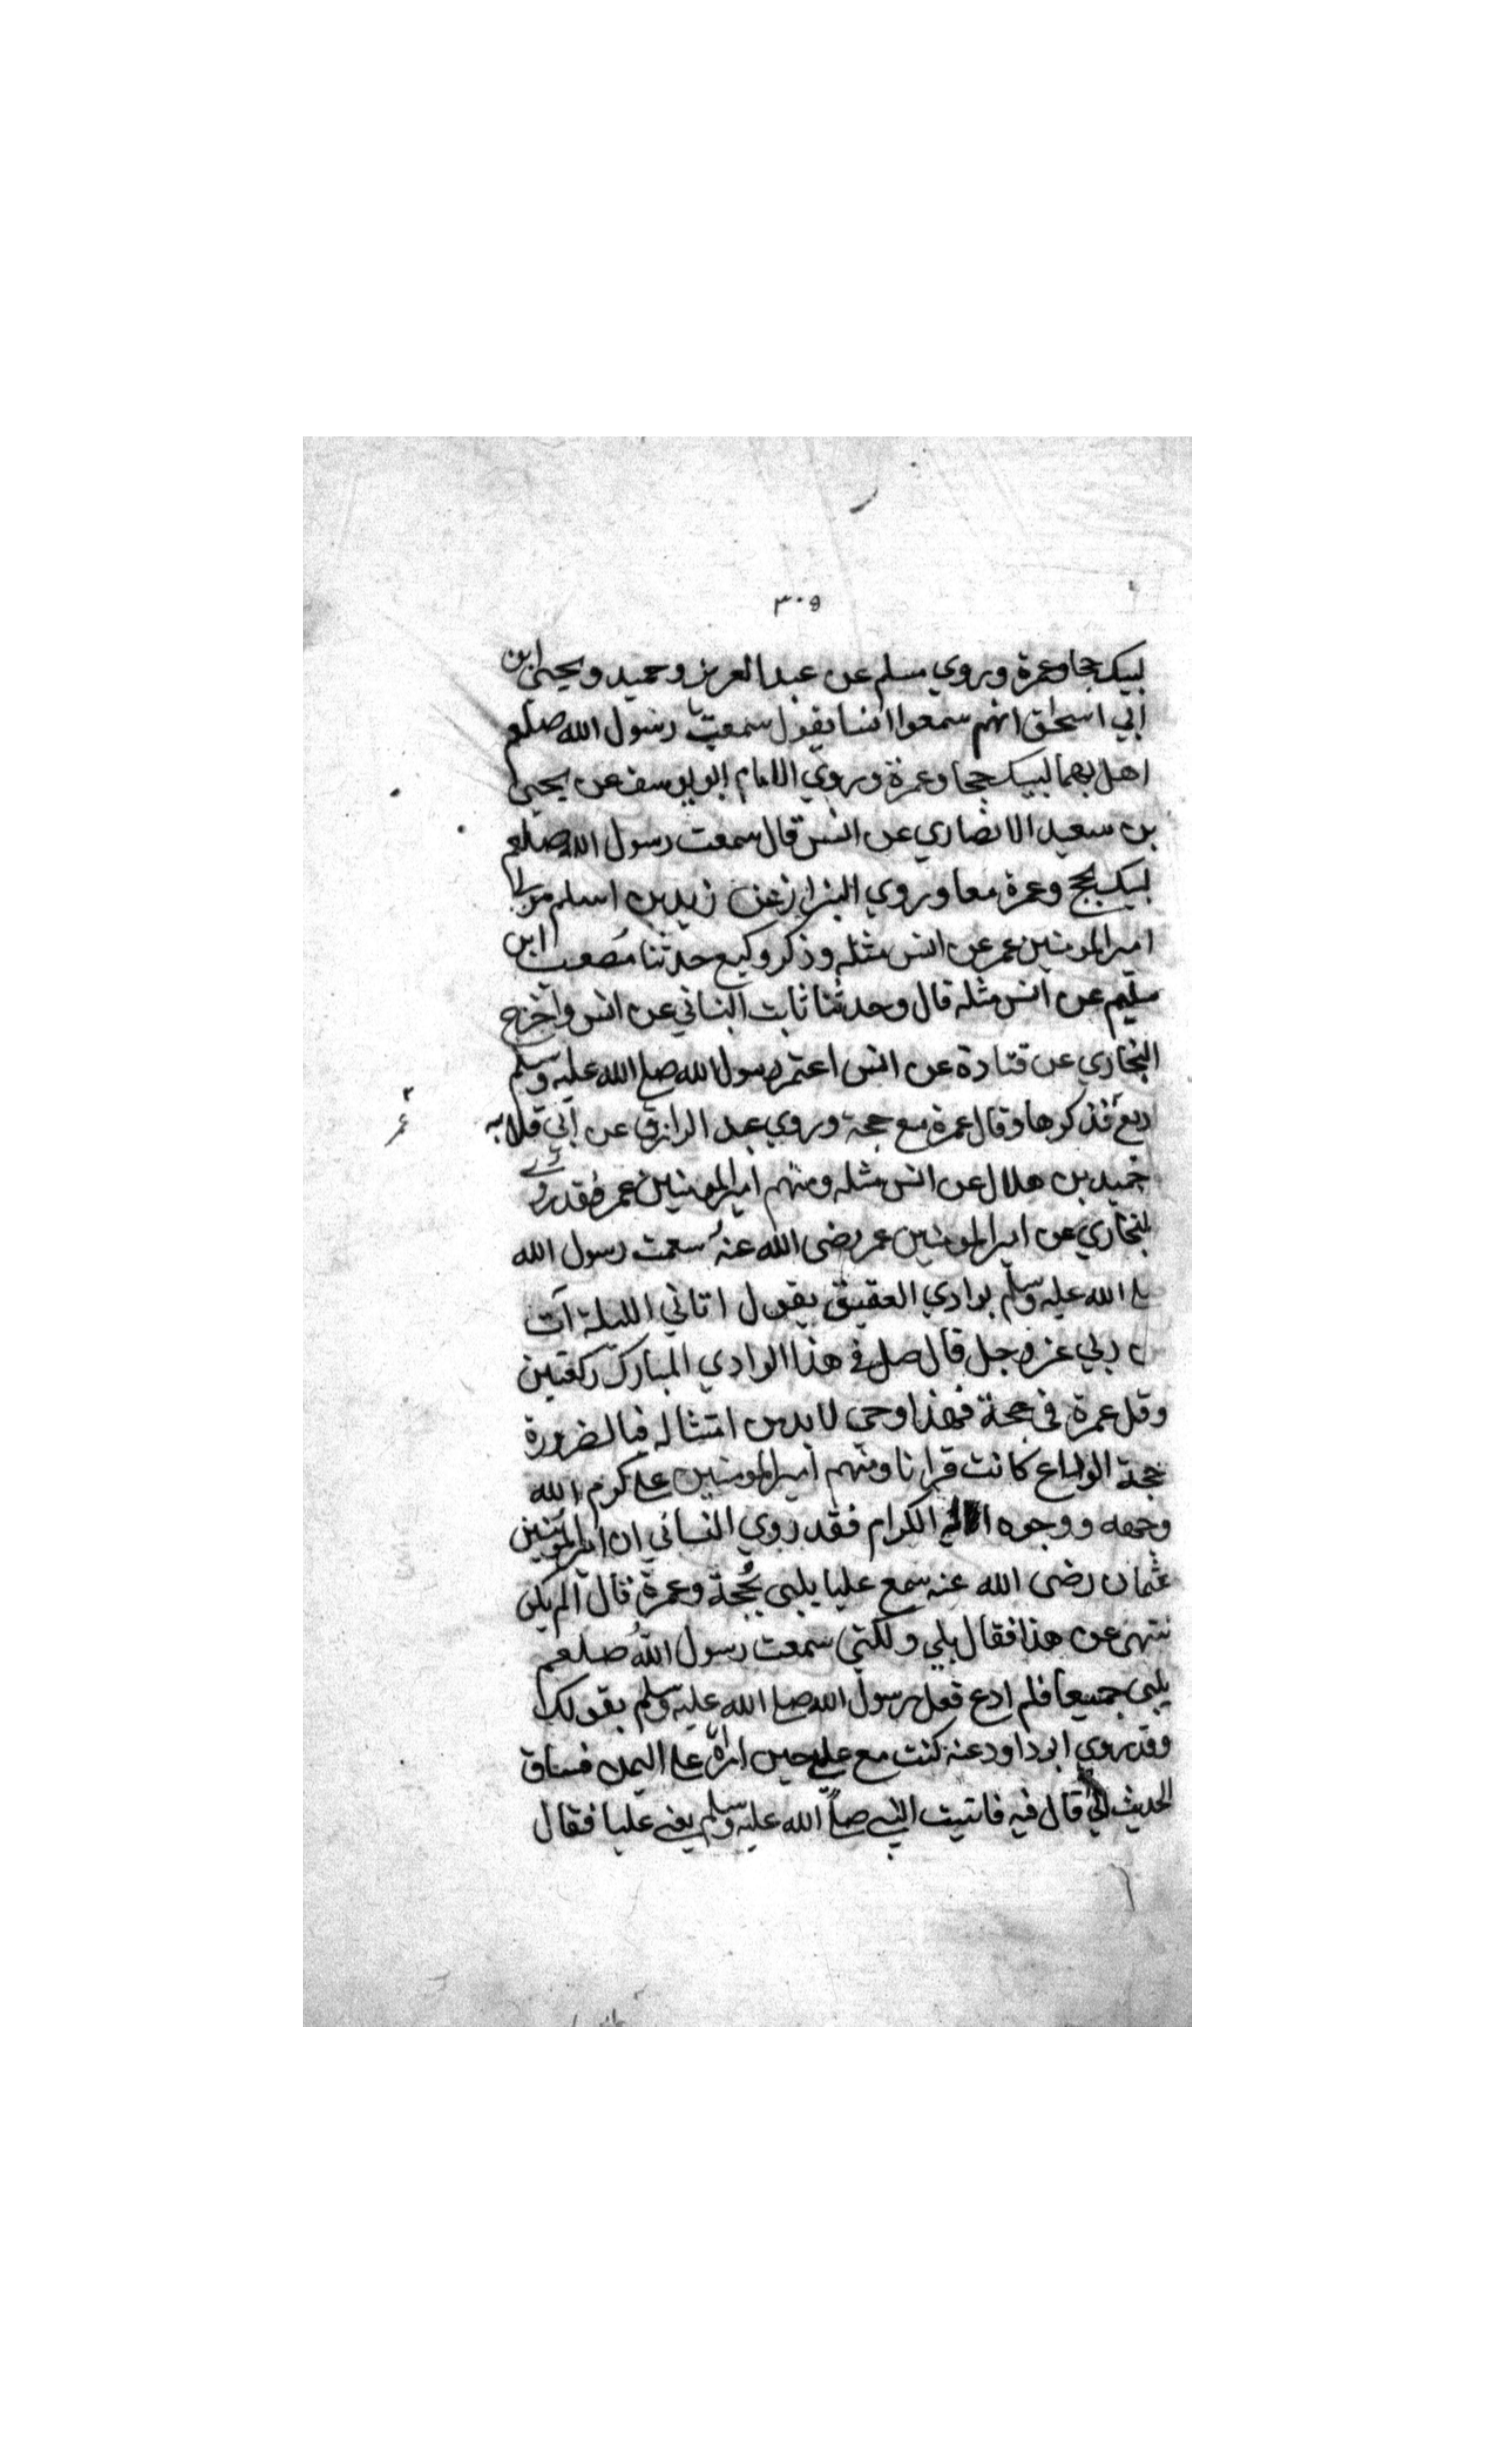 ٣٠٥
لبيك حجا وعمرة وروي مسلم عن عبد العزيز وحميد ويحيى ابن
ابي اسحق انهم سمعوا انسا يقول سمعت رسول الله صلعم
اهل بهما لبيك حجا وعمرة وروي الامام ابو يوسف عن يحيى
بن سعيد الانصاري عن انس قال سمعت رسول الله صلعم
لبيك بحج وعمرة معا وروي البزار عن زيد بن اسلم مولى
امير المومنين عمر عن انس مثله وذكر وكيع حدثنا مصعب ابن
سليم عن انس مثله قال وحدثنا ثابت البناني عن انس واخرج
البخاري عن قتادة عن انس اعتمر رسول الله صلى الله عليه وسلم
اربع فذكرها وقال عمرة مع حجة وروي عبد الرازق عن ابي قلابه
حميد بن هلال عن انس مثله ومنهم امير المومنين عمر فقد روي
البخاري عن امير المومنين عمر رضى الله عنه سمعت رسول الله
صلى الله عليه وسلم بوادي العقيق يقول اتاني الليلة آت
من ربي عز وجل قال صل في هذا الوادي المبارك ركعتين
وقل عمرة في حجة فهذا وحي لا بد من امتثاله فبالضرورة
حجة الوداع كانت قرانا ومنهم امير المومنين على كرم الله
وجهه ووجوه الكرام فقد روي النسائي ان امير المومنين
عثمان رضى الله عنه سمع عليا يلبى بحجة وعمرة قال الم يكن
ننتهى عن هذا فقال بلي ولكني سمعت رسول الله صلعم
يلبى جميعا فلم ادع فعل رسول الله صلى الله عليه وسلم بقولك
وقد روي ابو داود عنه كنت مع على حين امره على اليمن فساق
الحديث قال فيه فاتيت النبي صلى الله عليه وسلم يعني عليا فقال